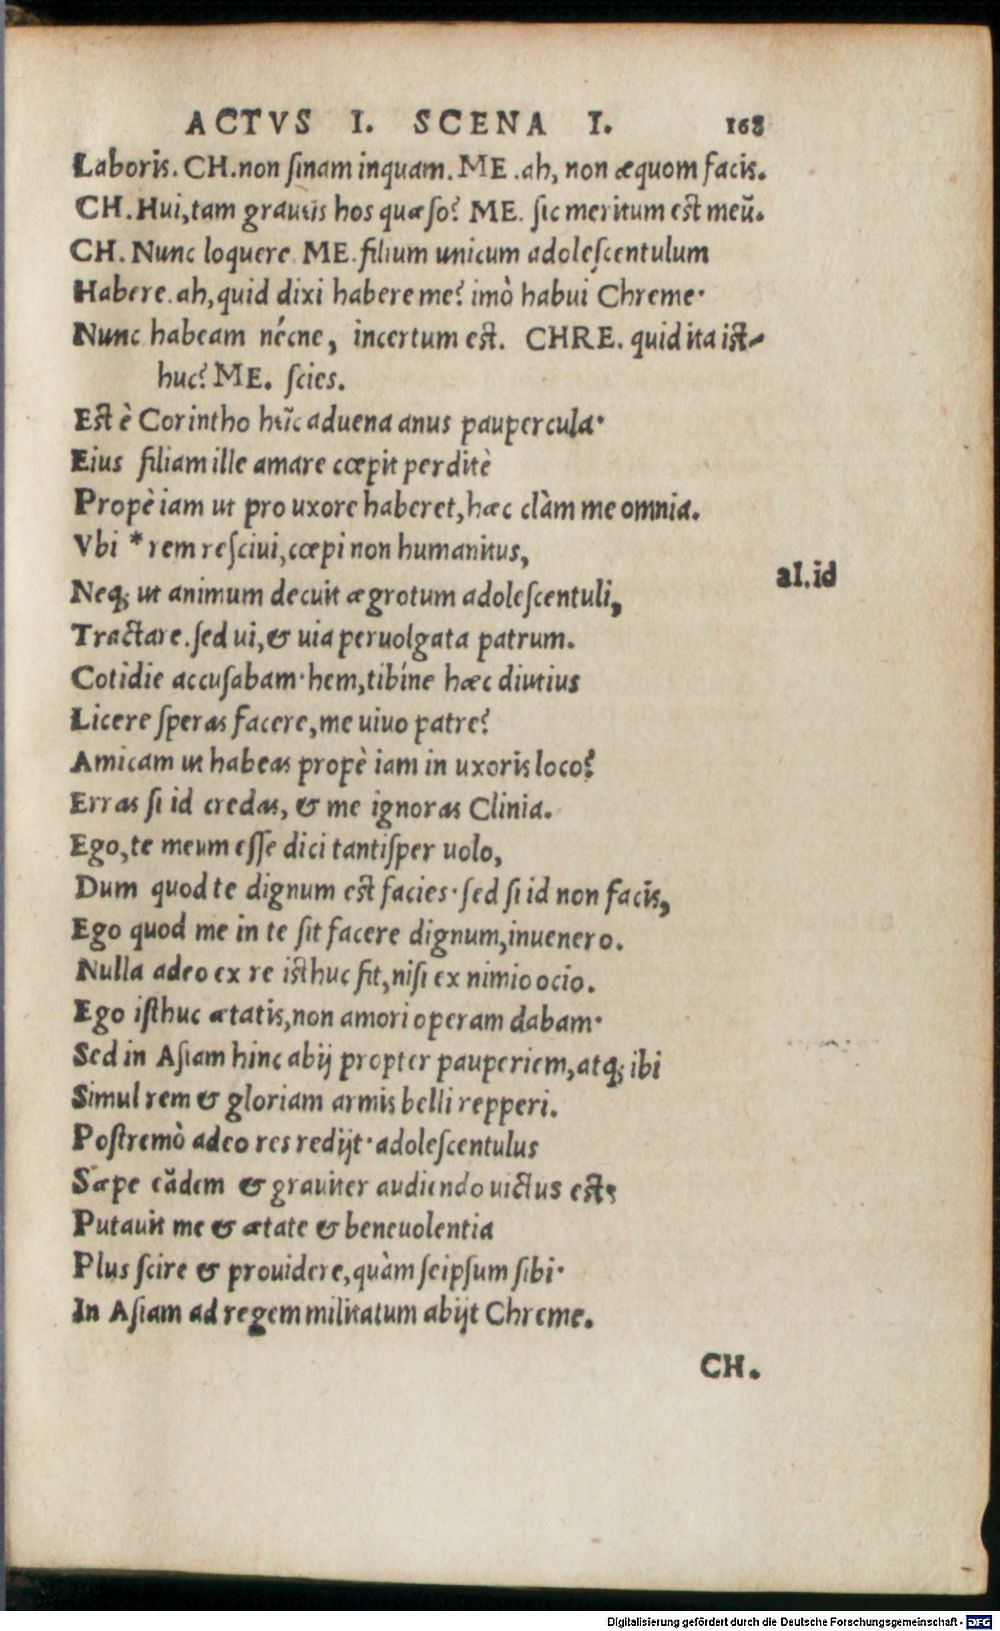 ACTVS I. SCENA I. 168
Laboris. CH. non ſinam inquam. ME. ah, non æquom facis.
CH. Hui, tam grauis hos quæſo? ME. ſic meritum est meū.
CH. Nunc loquere ME. filium unicum adoleſcentulum
Habere. ah, quid dixi habere me? imò habui Chreme·
Nunc habeam nécne, incertum est. CHRE. quid ita ist-
huc? ME. ſcies.
Est è Corintho hūc aduena anus paupercula·
Eius filiam ille amare cœpit perditè
Propè iam ut pro uxore haberet, hæc clàm me omnia.
Vbi * rem reſciui, cœpi non humanitus,
al. id
Neq; ut animum decuit ægrotum adoleſcentuli,
Tractare. ſed ui, & uia peruolgata patrum.
Cotidie accuſabam· hem, tibíne hæc diutius
Licere ſperas facere, me uiuo patre?
Amicam ut habeas propè iam in uxoris loco?
Erras ſi id credas, & me ignoras Clinia.
Ego, te meum eſſe dici tantiſper uolo,
Dum quod te dignum est facies· ſed ſi id non facis,
Ego quod me in te ſit facere dignum, inuenero.
Nulla adeo ex re isthuc fit, niſi ex nimio ocio.
Ego iſthuc ætatis, non amori operam dabam·
Sed in Aſiam hinc abij propter pauperiem, atq; ibi
Simul rem & gloriam armis belli repperi.
Poſtremò adeo res redijt· adoleſcentulus
Sæpe eãdem & grauiter audiendo uictus est,
Putauit me & ætate & beneuolentia
Plus ſcire & prouidere, quàm ſeipſum ſibi·
In Aſiam ad regem militatum abijt Chreme.
CH.
Digitalisierung gefördert durch die Deutsche Forschungsgemeinschaft - DFG